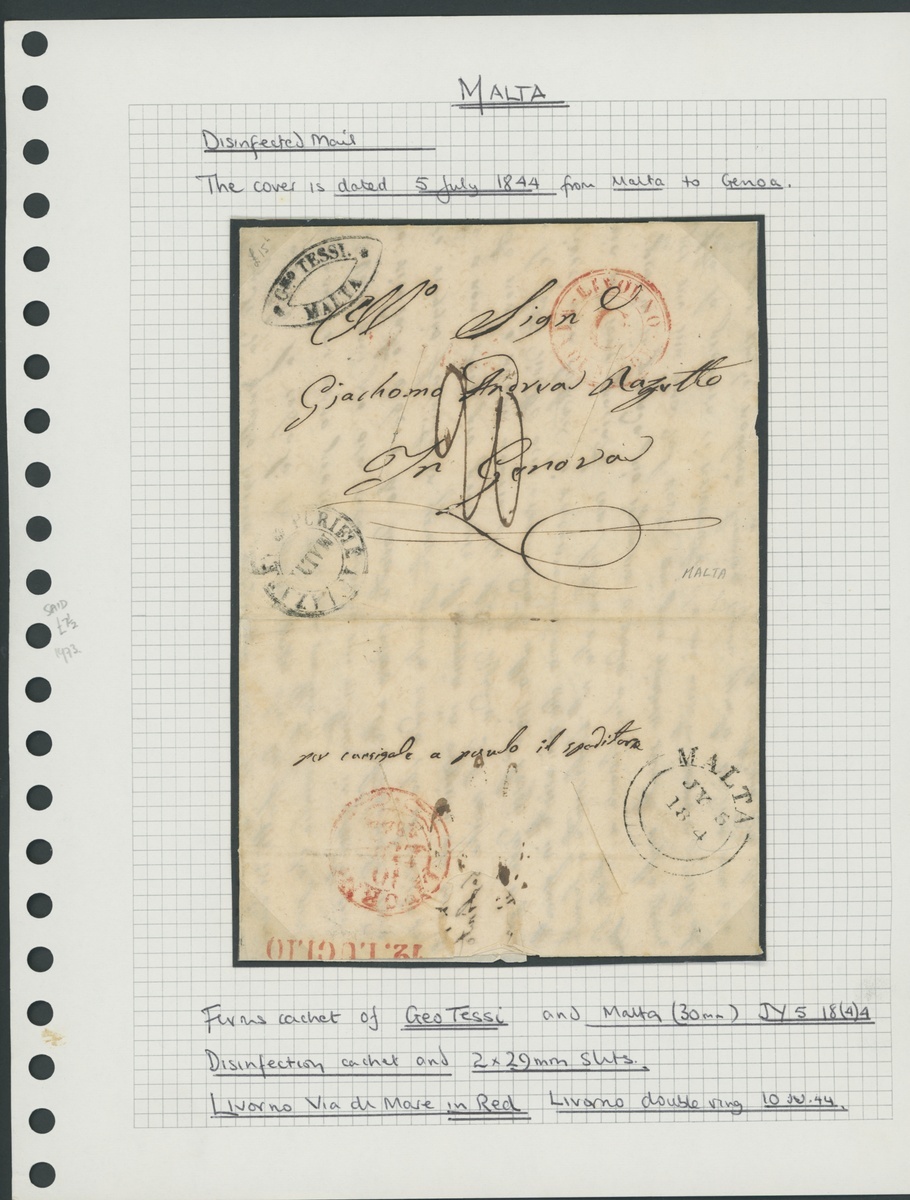 MALTA
Disinfected Mail
The cover is dated 5 July 1844 from Malta to Genoa.
£15
GEO TESSI.
MALTA
LIVORNO
Sign
Giachomo Andrea
20
In Genova
PURIF
MALTA
MALTA
SAID
1973
per a il speditore
MALTA
JY 5
18 4
10
12. LUGLIO
Firms cachet of Geo Tessi and Malta (30mm) JY 5 18(4)4
Disinfection cachet and 2 x 29mm Slits.
Livorno Via di Mare in Red Livorno double ring 10 JUL.44.